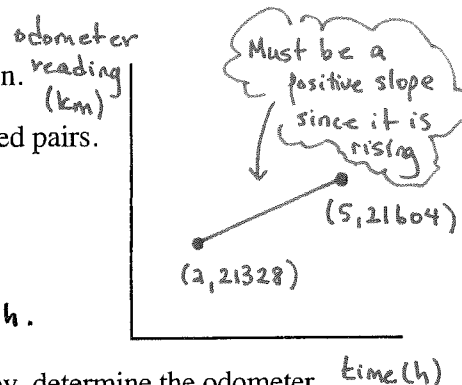 odometer
reading
(km)
n.
ed pairs.
Must be a
positive slope
since it is
rising
(5, 21604)
(2, 21328)
h.
time (h)
by, determine the odometer